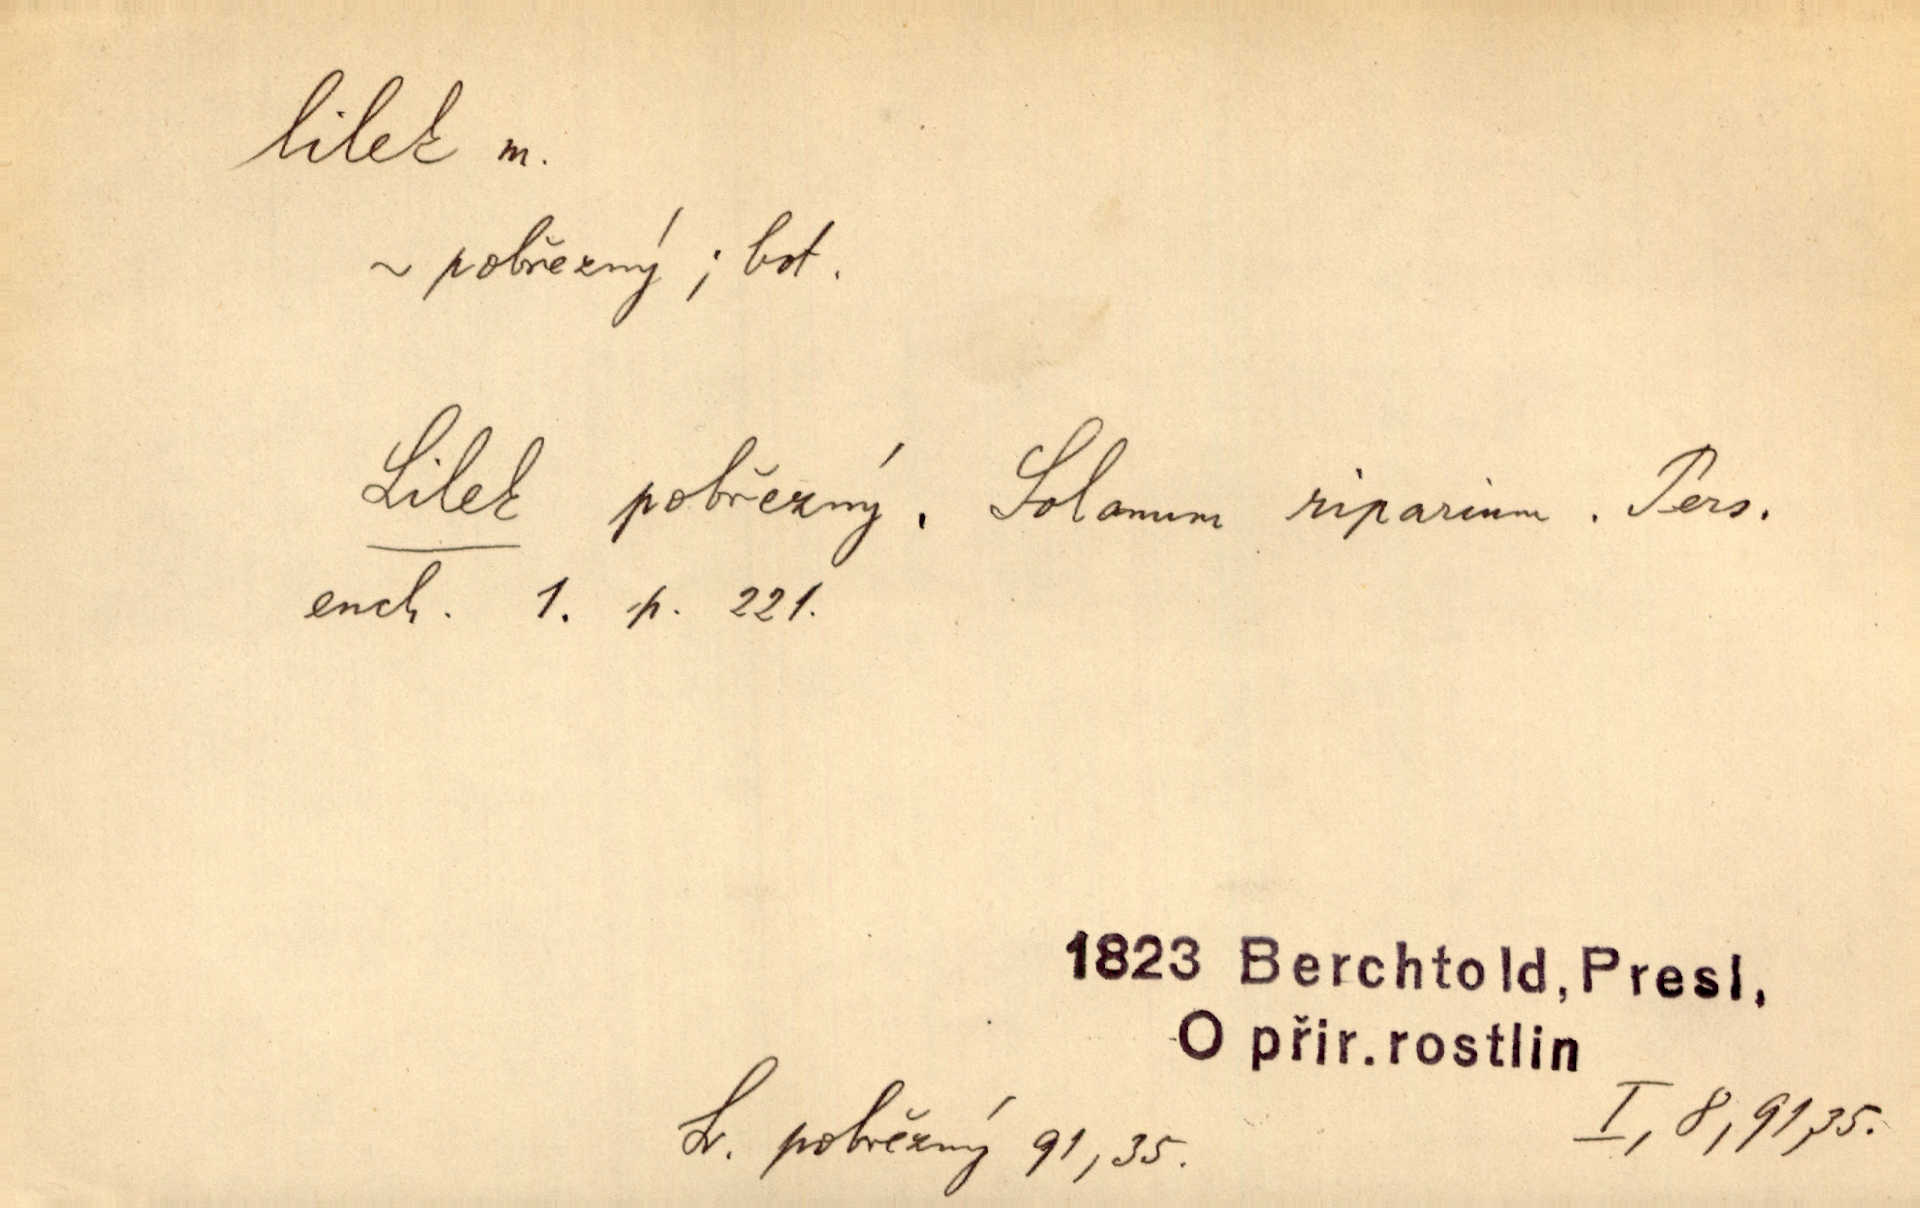 lilek m.
~ pobřezný ; bot.
Lilek pobřezný. Solanum riparium. Pers.
ench. 1. p. 221.
1823 Berchtold, Presl,
O přir. rostlin
L. pobřezný 91,35.
I, 8, 91,35.